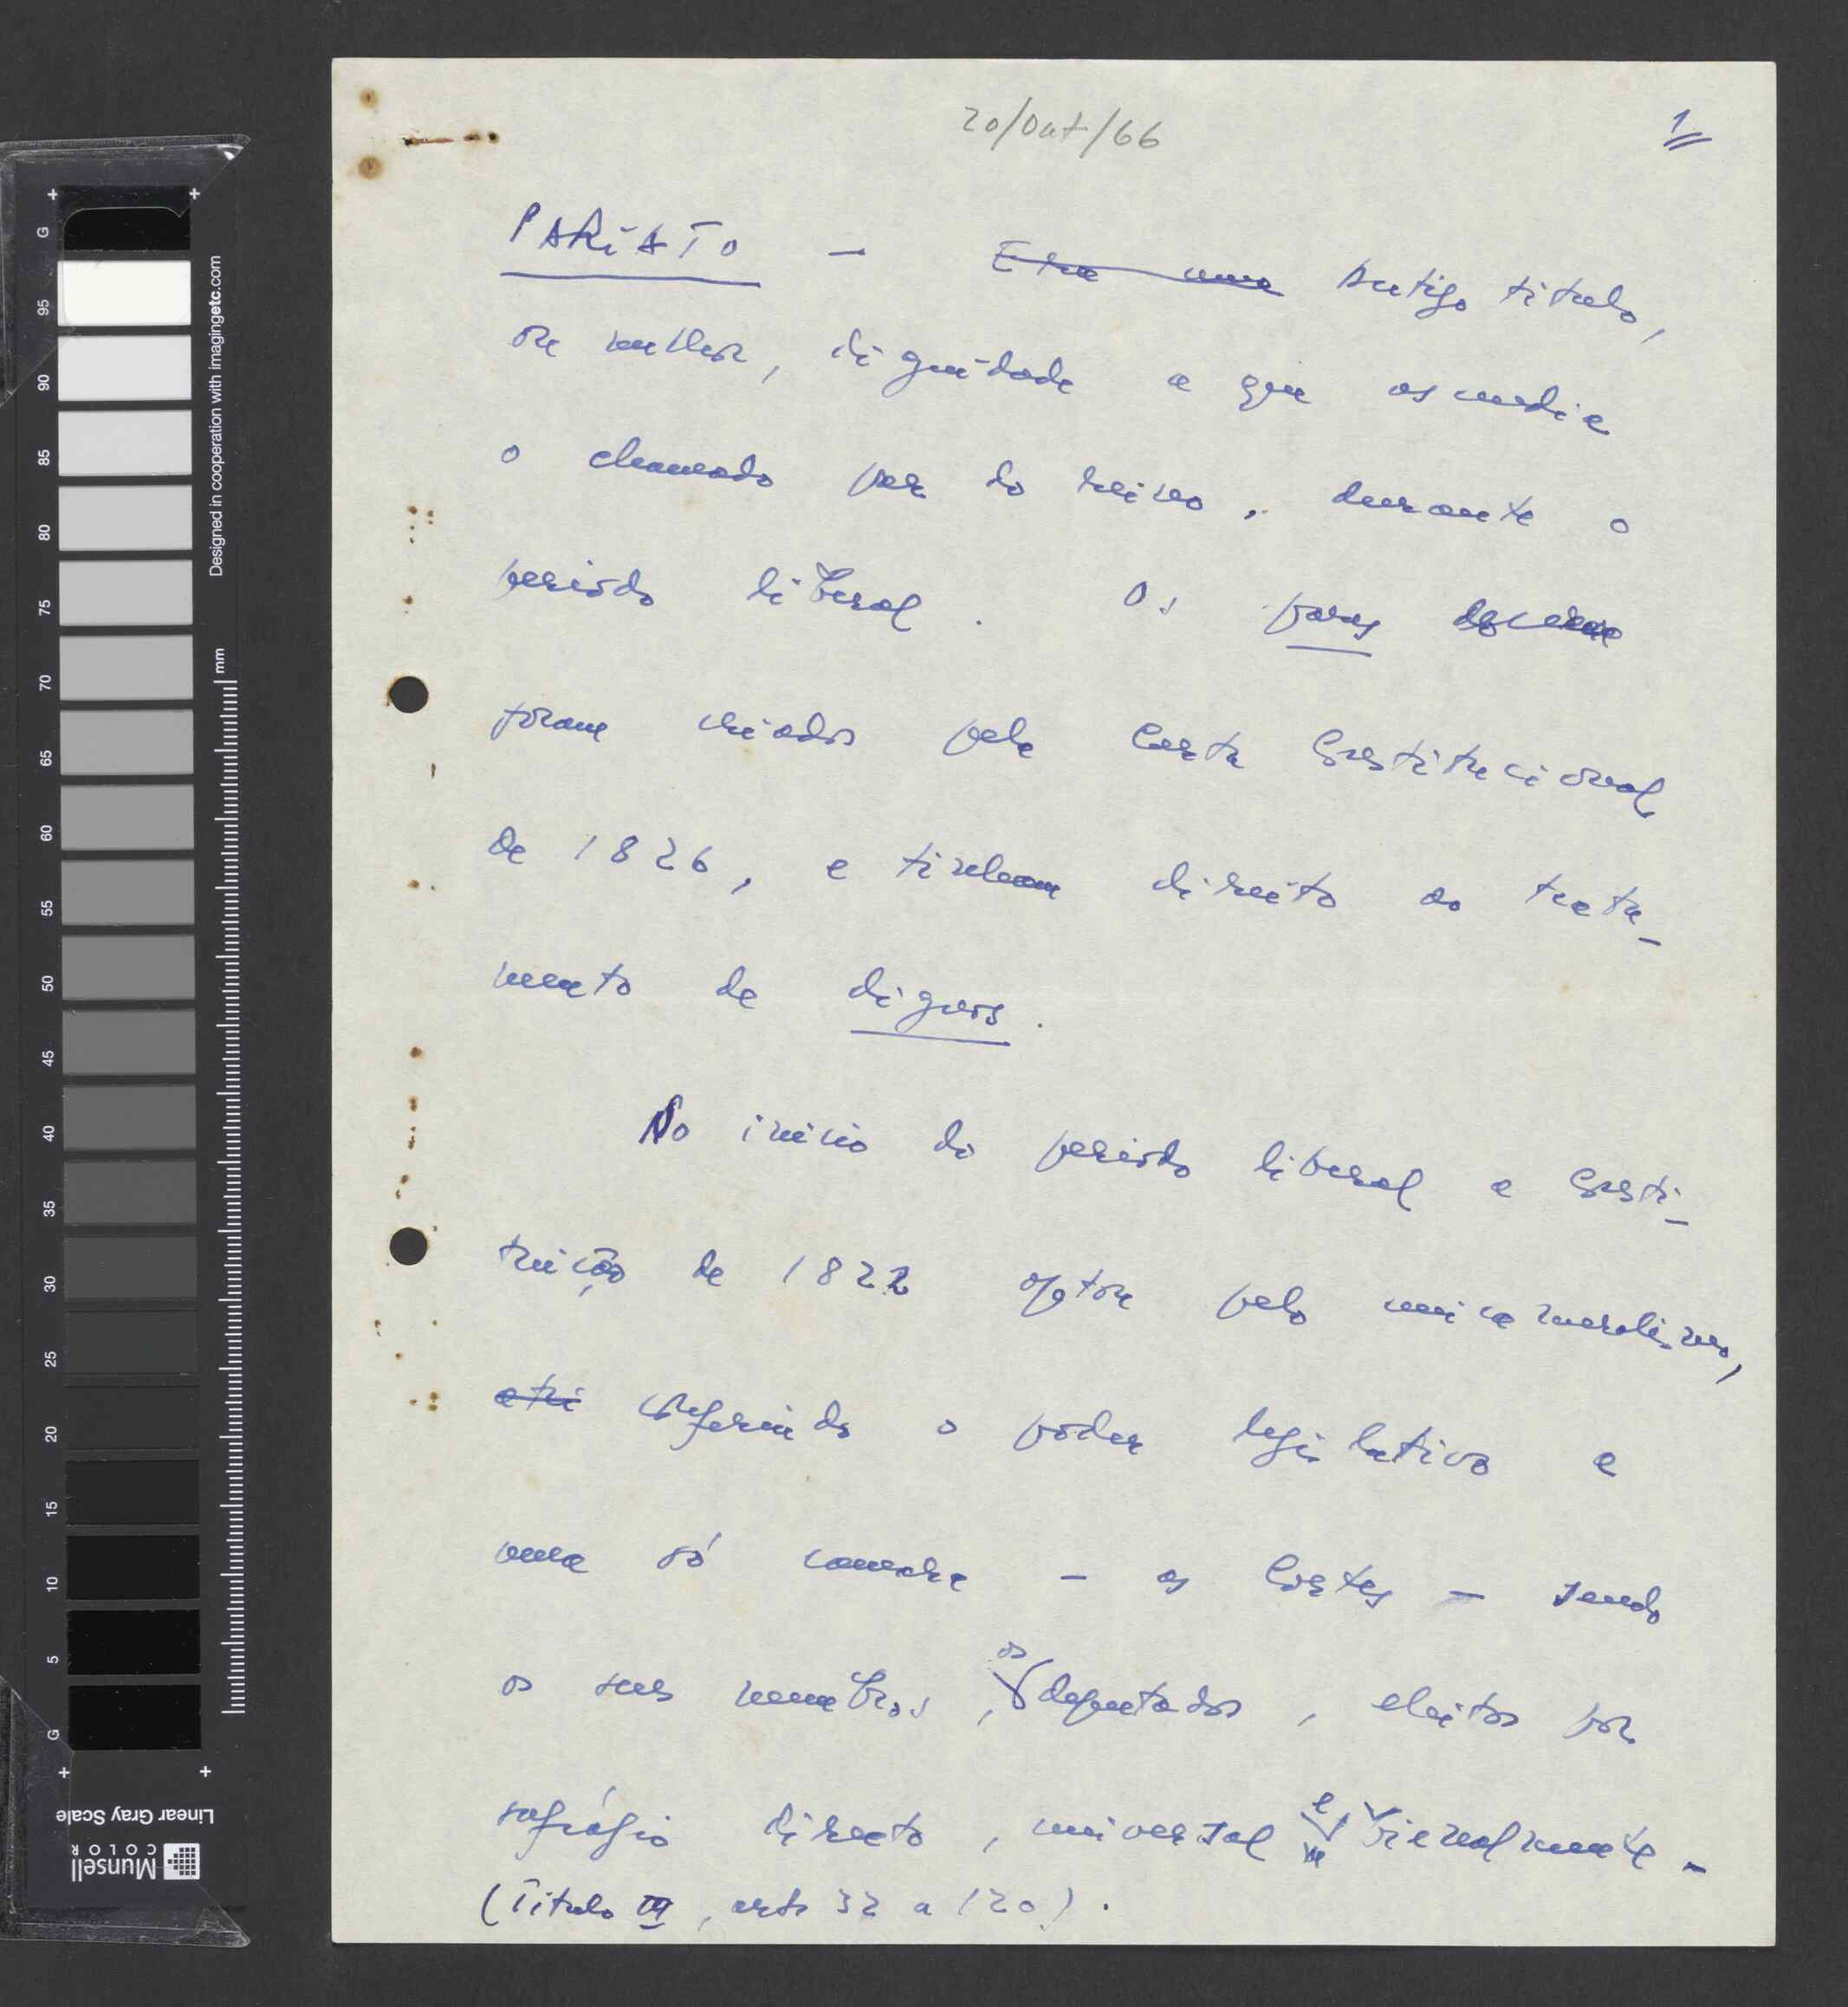 20/Out/66
1
PARIATO — ~~Era uma~~ Antigo titulo,
ou melhor, dignidade a que ascendia
o chamado par do reino, durante o
periodo liberal. Os pares
foram criados pela Carta Constitucional
de 1826, e tinham direito ao trata-
mento de dignos.
No inicio do periodo liberal a Consti-
tuição de 1822 optou pelo unicamaralismo,
~~atri~~ conferindo o poder legislativo a
uma só camara — as Cortes — sendo
os seus membros, os deputados, eleitos por
sufrágio directo, universal e bienalmente.
(Titulo III, arts 32 a 120).
G
95
90
85
80
75
70
65
60
55
50
45
40
35
30
25
20
15
10
5
G
mm
mm
Designed in cooperation with imagingetc.com
Linear Gray Scale
Munsell
COLOR